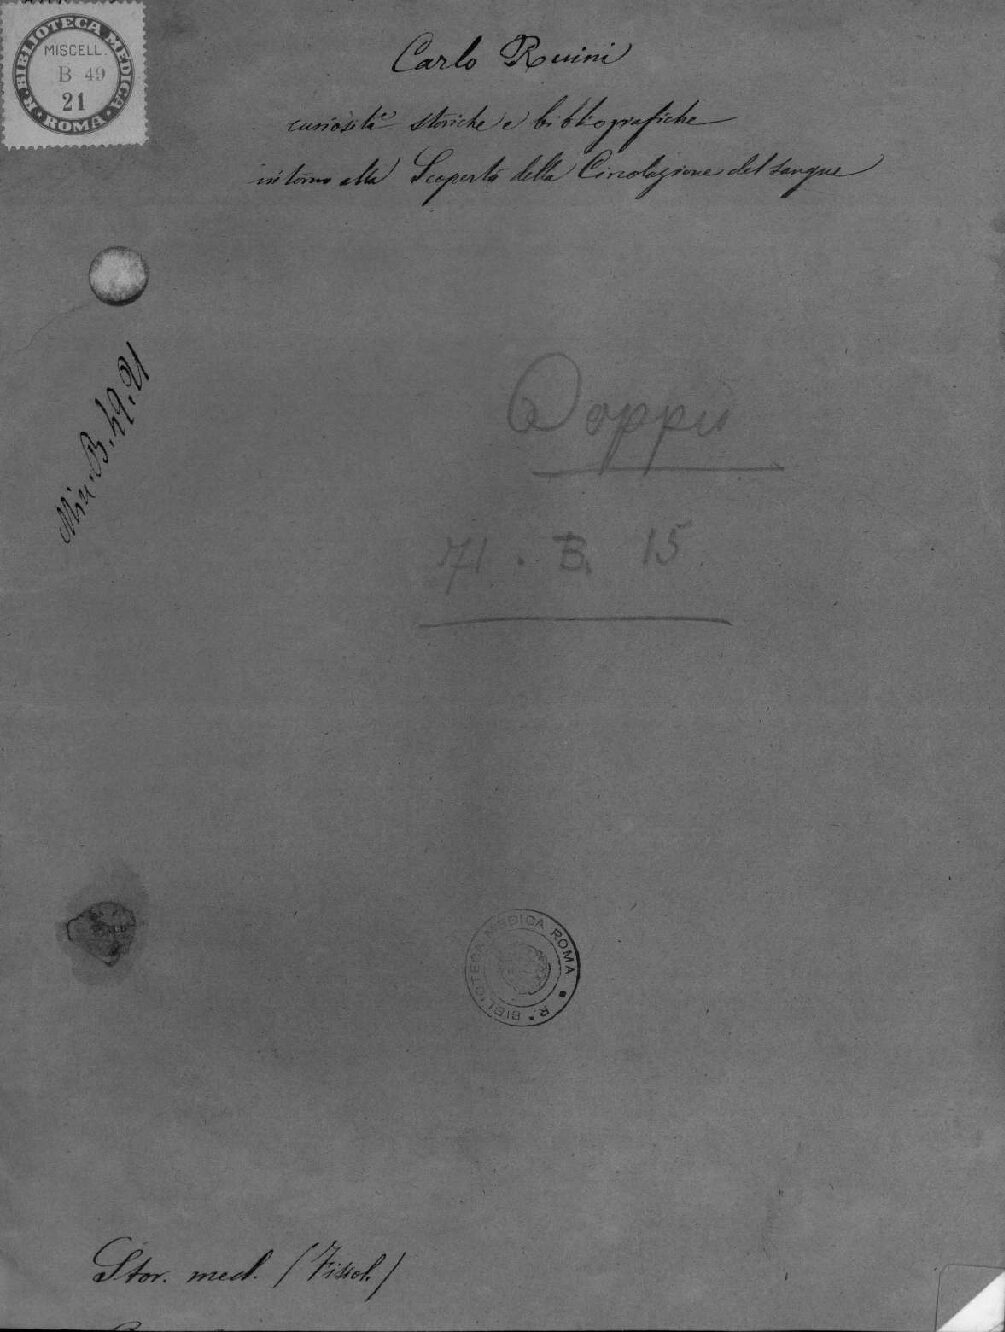 R. BIBLIOTECA MEDICA
MISCELL.
B 49
21
ROMA
Carlo Ruini
curiosità storiche e bibliografiche
intorno alla Scoperta della Circolazione del sangue
Misc. B. 49. 21
Doppio
71. B. 15.
R.ª BIBLIOTECA MEDICA ROMA
Stor. med. (Fisiol.)